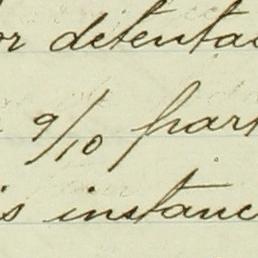 or detenta
9/10 part
is instanc